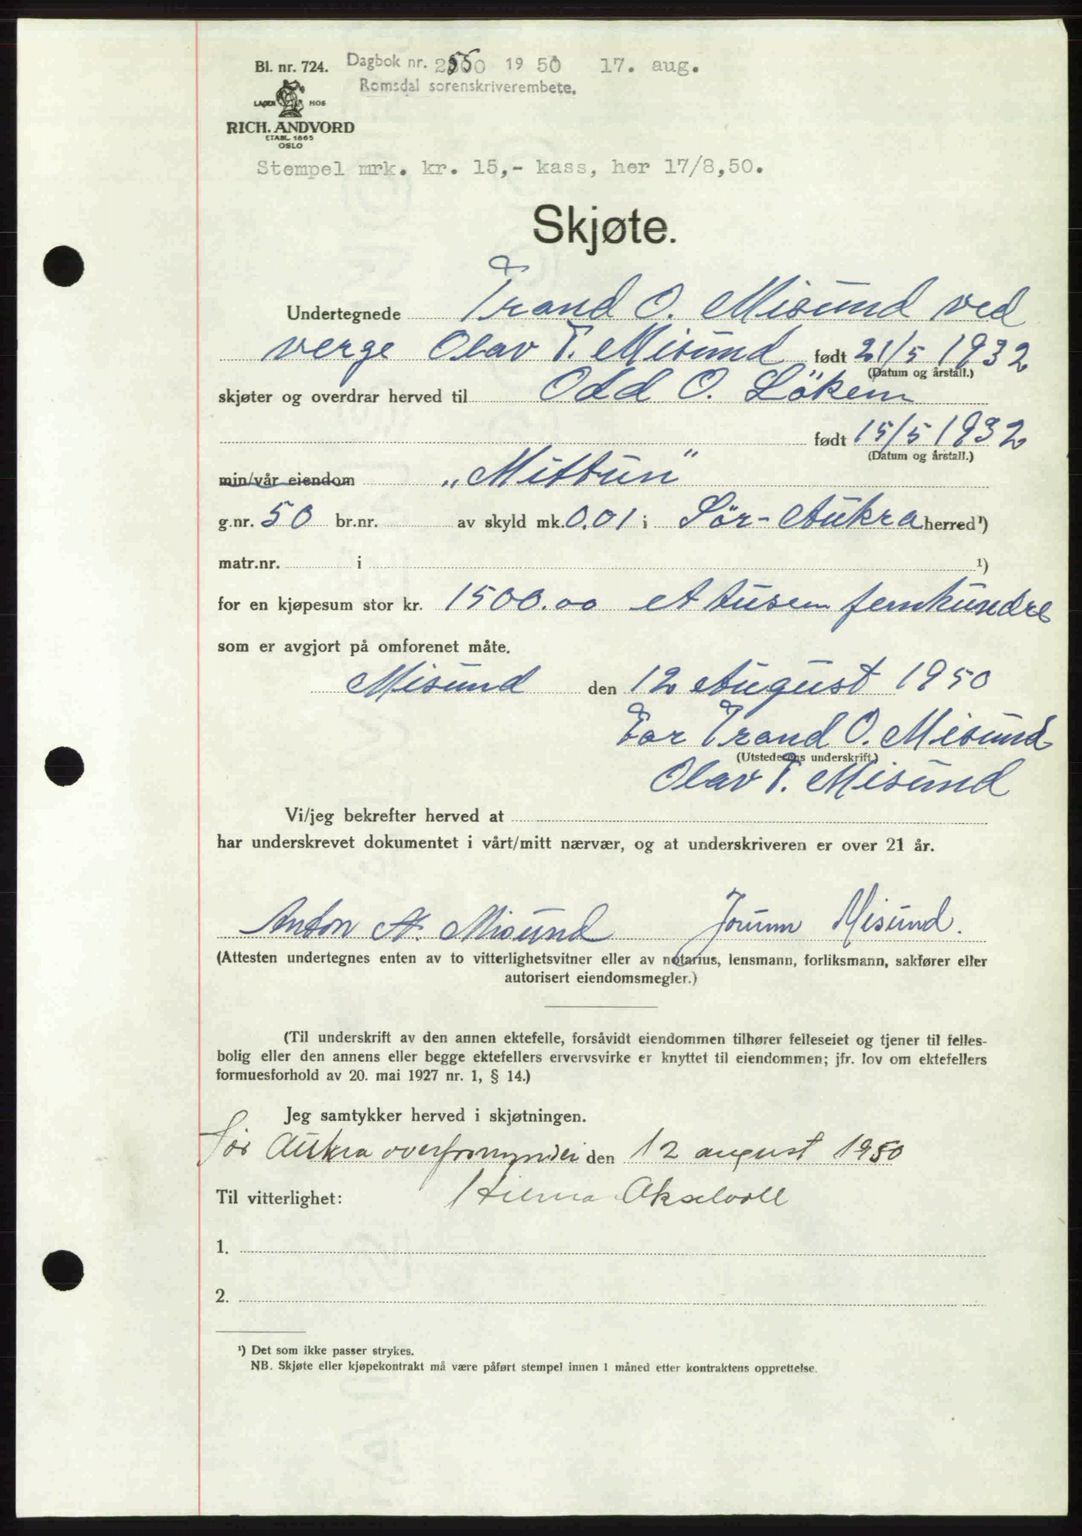 Bl. nr. 724. Dagbok nr. 2550 1950 17. aug.
Romsdal sorenskriverembete.
LAGER HOS
RICH. ANDVORD
ETABL. 1865
OSLO
Stempel mrk. kr. 15,- kass, her 17/8,50.
Skjøte.
Undertegnede Trond O. Misund ved
verge Olav T. Misund født 21/5 1932
(Datum og årstall.)
skjøter og overdrar herved til Odd O. Lökem
født 15/5 1932
(Datum og årstall.)
min/vår eiendom „Mittun”
g.nr. 50 br.nr. av skyld mk. 0.01 i Sör-Aukra herred¹)
matr.nr. i ¹)
for en kjøpesum stor kr. 1500.00 et tusen femhundre
som er avgjort på omforenet måte.
Misund den 12 August 1950
For Trond O. Misund
(Utstederens underskrift.)
Olav T. Misund
Vi/jeg bekrefter herved at
har underskrevet dokumentet i vårt/mitt nærvær, og at underskriveren er over 21 år.
Anton A. Misund Jorunn Misund.
(Attesten undertegnes enten av to vitterlighetsvitner eller av notarius, lensmann, forliksmann, sakfører eller
autorisert eiendomsmegler.)
(Til underskrift av den annen ektefelle, forsåvidt eiendommen tilhører felleseiet og tjener til felles-
bolig eller den annens eller begge ektefellers ervervsvirke er knyttet til eiendommen; jfr. lov om ektefellers
formuesforhold av 20. mai 1927 nr. 1, § 14.)
Jeg samtykker herved i skjøtningen.
Sør Aukra overformynderi den 12 august 1950
Til vitterlighet: Hilmar Akselvoll
1.
2.
¹) Det som ikke passer strykes.
NB. Skjøte eller kjøpekontrakt må være påført stempel innen 1 måned etter kontraktens opprettelse.